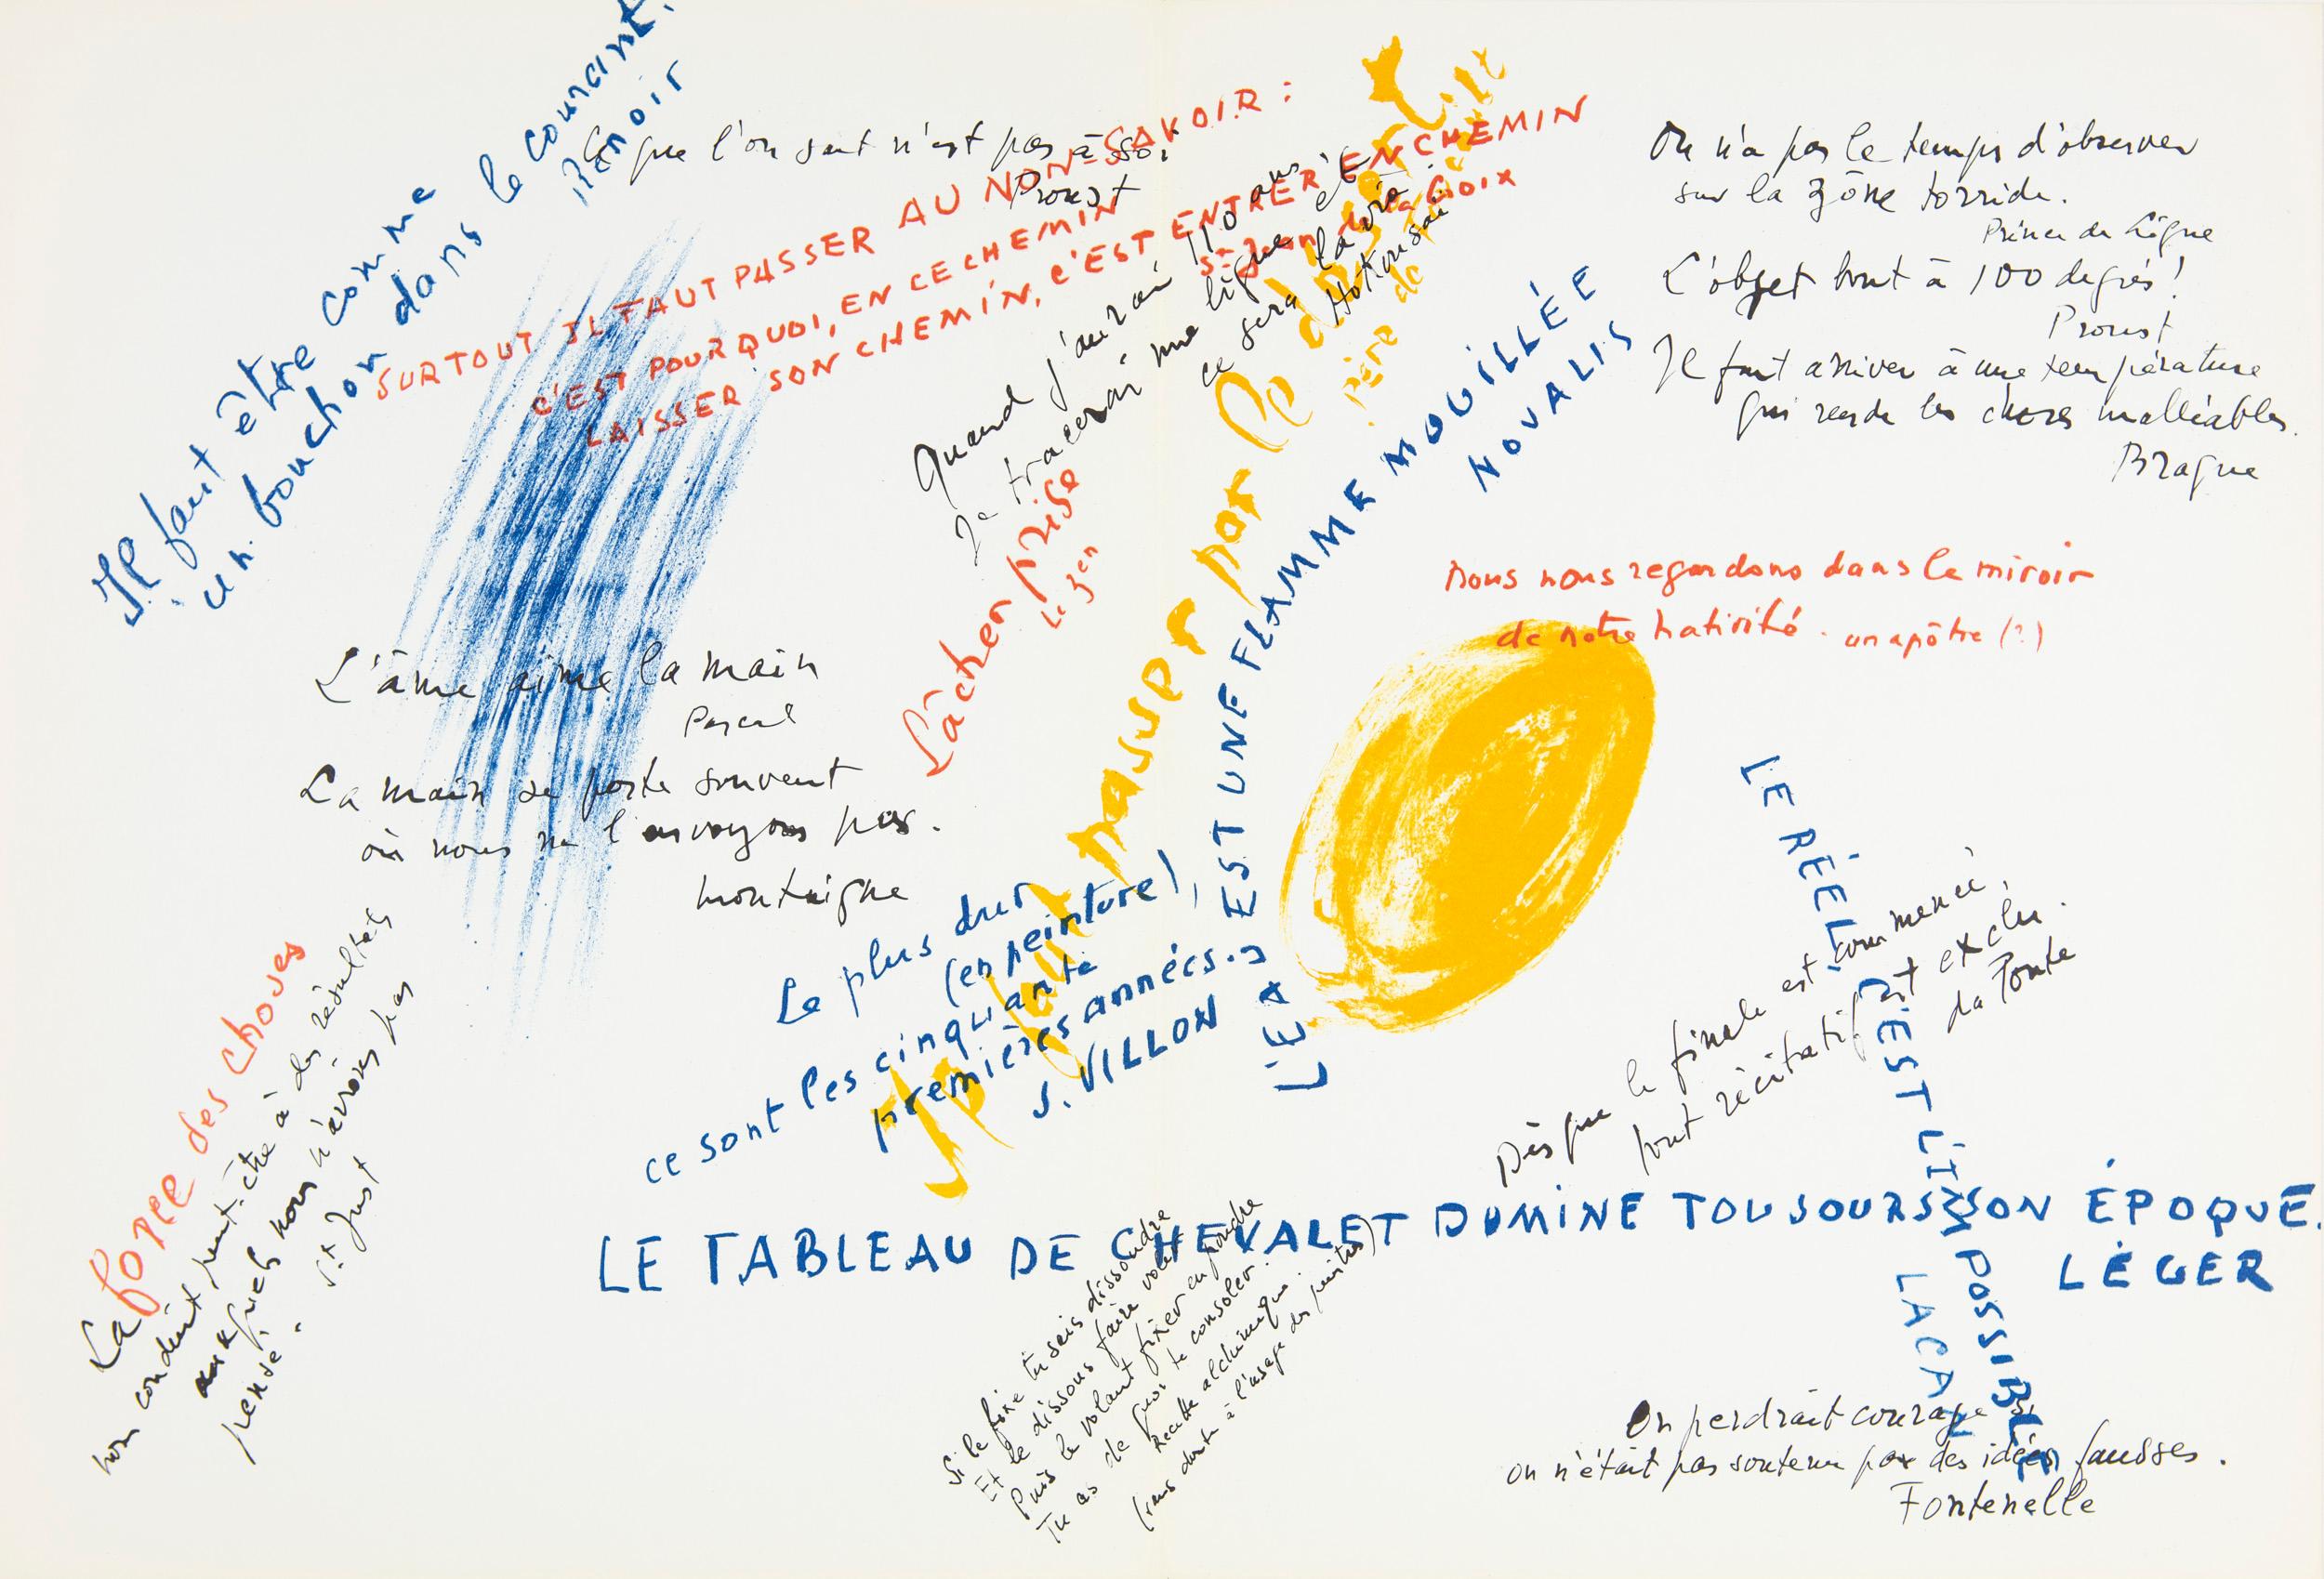 Il faut être comme
un bouchon dans le courant.
Renoir
Ce que l'on sait n'est pas à soi
Proust
SURTOUT IL FAUT PASSER AU NON-SAVOIR :
C'EST POURQUOI, EN CE CHEMIN
LAISSER SON CHEMIN, C'EST ENTRER EN CHEMIN
St Jean de la Croix
Quand j'aurai 110 ans
Je tracerai une ligne et
ce sera la vie
Hokousaï
Lâcher prise
le zen
Il faut passer par le
père de
L'EAU EST UNE FLAMME MOUILLÉE
NOVALIS
On n'a pas le temps d'observer
sur la zône torride.
Prince de Ligne
L'objet bout à 100 degrés !
Proust
Il faut arriver à une température
qui rende les choses malléables.
Braque
Nous nous regardons dans le miroir
de notre nativité. un apôtre (?)
L'âme aime la main
Pascal
La main se porte souvent
où nous ne l'envoyons pas.
Montaigne
Le plus dur
(en peinture),
ce sont les cinquante
premières années.
J. VILLON
LE RÉEL, C'EST L'IMPOSSIBLE
LACAN
Dès que le finale est commencé,
tout récitatif est exclu.
da Ponte
La force des choses
nous conduit peut-être à des résultats
auxquels nous n'avions pas
pensé.
St Just
LE TABLEAU DE CHEVALET DOMINE TOUJOURS SON ÉPOQUE.
LÉGER
Si le fixe tu sais dissoudre
Et le dissous faire voler
Puis le volant fixer en poudre
Tu as de quoi te consoler.
Recette alchimique.
(sans doute à l'usage des peintres)
On perdrait courage si
on n'était pas soutenu par des idées fausses.
Fontenelle